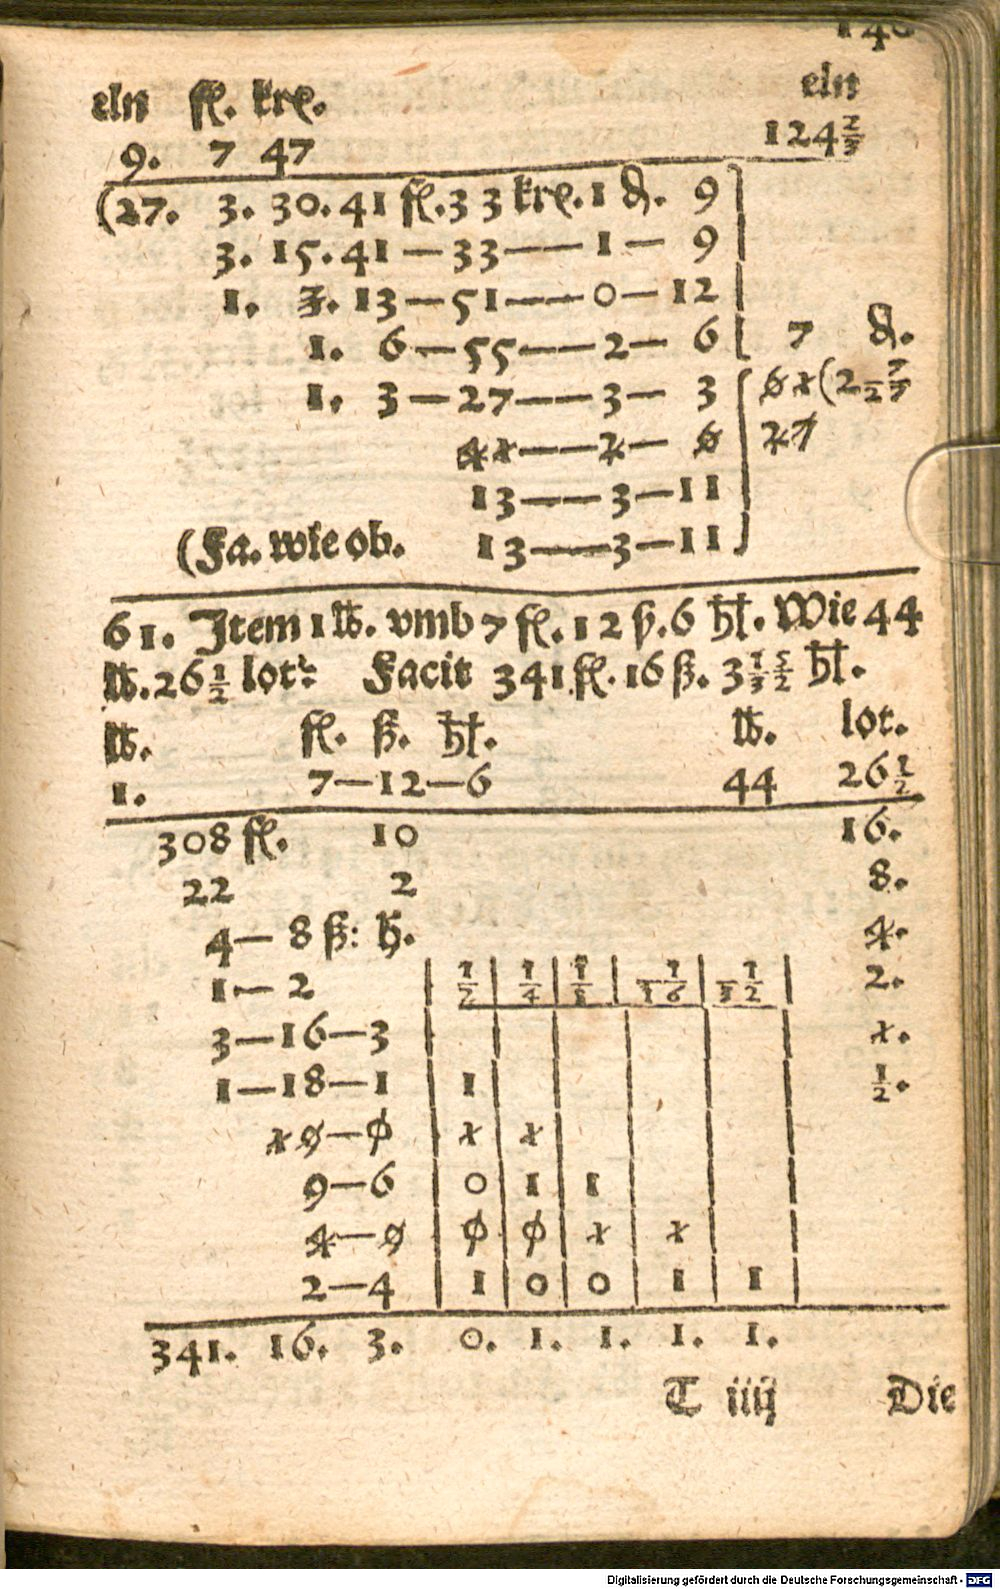 eln fl. kre. eln
9. 7 47 124 2/3
(27. 3. 30. 41 fl. 33 kre. 1 ₰. 9
3. 15. 41 — 33 — — 1 — 9
1. 3. 13 — 51 — — 0 — 12
1. 6 — 55 — — 2 — 6 7 ₰.
1. 3 — 27 — — 3 — 3 6 1 (2 7/27
41 — — 2 — 6 27
13 — — 3 — 11
(Fa. wie ob. 13 — — 3 — 11
61. Item 1 ℔. vmb 7 fl. 12 ß. 6 hl. Wie 44
℔. 26 1/2 lot? Facit 341 fl. 16 ß. 3 15/32 hl.
℔. fl. ß. hl. ℔. lot.
1. 7 — 12 — 6 44 26 1/2
308 fl. 10 16.
22 2 8.
4 — 8 ß: h. 4.
1 — 2 1/2 1/4 1/8 1/16 1/32 2.
3 — 16 — 3 1.
1 — 18 — 1 1 1/2.
19 — 0 1 1
9 — 6 0 1 1
4 — 9 0 0 1 1
2 — 4 1 0 0 1 1
341. 16. 3. 0. 1. 1. 1. 1.
T iiij Die
Digitalisierung gefördert durch die Deutsche Forschungsgemeinschaft - DFG